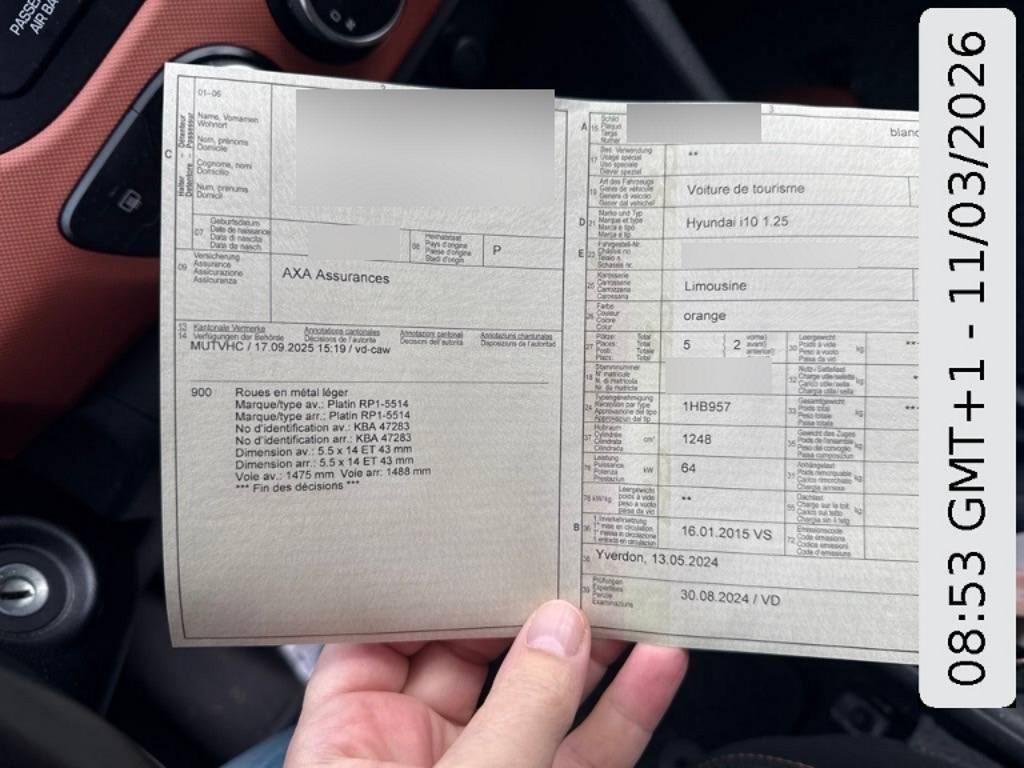 PASSE
AIR BA
01-06
C
Name, Vornamen
Wohnort
Nom, prénoms
Domicile
Cognome, nomi
Domicilio
Num, prenums
Domicil
07
Geburtsdatum
Date de naissance
Data di nascita
Data da nasch.
08
Heimatstaat
Pays d'origine
Paese d'origine
Stadi d'origin
P
09
Versicherung
Assurance
Assicurazione
Assicuranza
AXA Assurances
13
14
Kantonale Vermerke
Verfügungen der Behörde
Annotations cantonales
Décisions de l'autorité
Annotazioni cantonali
Decisioni dell'autorità
Annotaziuns chantunalas
Disposiziuns da l'autoritad
MUTVHC / 17.09.2025 15:19 / vd-caw
900 Roues en métal léger
Marque/type av.: Platin RP1-5514
Marque/type arr.: Platin RP1-5514
No d'identification av.: KBA 47283
No d'identification arr.: KBA 47283
Dimension av.: 5.5 x 14 ET 43 mm
Dimension arr.: 5.5 x 14 ET 43 mm
Voie av.: 1475 mm Voie arr: 1488 mm
*** Fin des décisions ***
3
A
15
Schild
Plaque
Targa
Numer
blanc
17
Bes. Verwendung
Usage spécial
Uso speciale
Diever spezial
**
19
Art des Fahrzeugs
Genre de véhicule
Genere di veicolo
Gener dal vehichel
Voiture de tourisme
D
21
Marke und Typ
Marque et type
Marca e tipo
Marca e tip
Hyundai i10 1.25
E
23
Fahrgestell-Nr.
Châssis no
Telaio n.
Schassis nr.
25
Karosserie
Carrosserie
Carrozzeria
Carossaria
Limousine
26
Farbe
Couleur
Colore
Color
orange
27
Plätze: Total
Places: Total
Posti: Totale
Plazs: Total
5
2
vorne
avant
anteriori
30
Leergewicht
Poids à vide
Peso a vuoto
Paisa da vid
kg
**
18
Stammnummer
N° matricule
N. di matricola
Nr. da matricla
32
Nutz-/Sattellast
Charge utile/sellette
Carico utile/sella
Chargia utila/sella
kg
24
Typengenehmigung
Réception par type
Approvazione del tipo
Approvaziun dal tip
1HB957
33
Gesamtgewicht
Poids total
Peso totale
Paisa totala
kg
**
37
Hubraum
Cylindrée
Cilindrata
Cilindrada
cm³
1248
35
Gewicht des Zuges
Poids de l'ensemble
Peso del convoglio
Paisa cumposiziun
kg
76
Leistung
Puissance
Potenza
Prestaziun
kW
64
31
Anhängelast
Poids remorquable
Peso rimorchiabile
Chargia annexa
kg
78 kW/kg
Leergewicht
poids à vide
peso a vuoto
paisa da vid
**
55
Dachlast
Charge sur le toit
Carico sul tetto
Chargia sin il tetg
kg
B
36
1. Inverkehrsetzung
1re mise en circulation
1a messa in circolazione
1. entrada en circulaziun
16.01.2015 VS
72
Emissionscode
Code émissions
Codice emissioni
Code d'emissiuns
38
Yverdon, 13.05.2024
39
Prüfungen
Expertises
Perizie
Examinaziuns
30.08.2024 / VD
08:53 GMT+1 - 11/03/2026